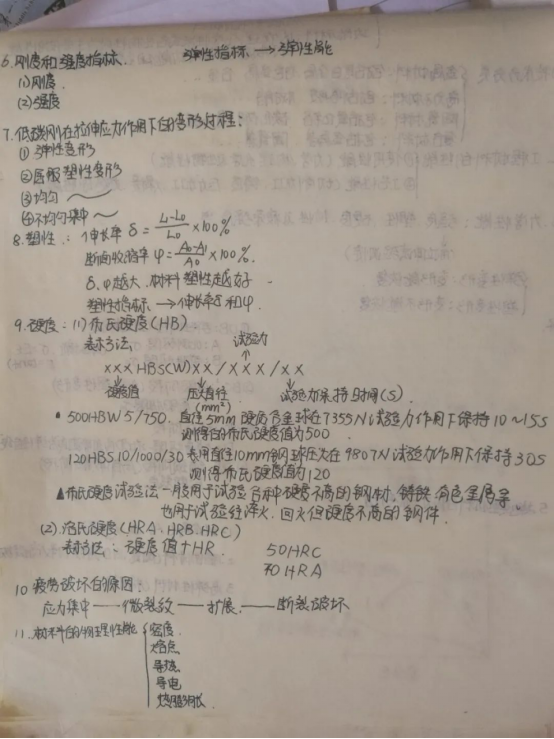 6.刚度和强度指标. 弹性指标→弹性能
(1)刚度.
(2)强度
7.低碳钢在拉伸应力作用下的变形过程:
① 弹性变形
②屈服塑性变形
③均匀 〜
④不均匀集中〜
8.塑性.: 伸长率 δ = L₁-L₀/L₀ ×100%
断面收缩率 φ= A₀-A₁/A₀ ×100%.
δ.φ越大.材料塑性越好.
塑性指标→伸长率δ和φ.
9.硬度:(1)布氏硬度(HB) 试验力
表示方法: ↑
×××HBS(W)××/×××/××
↓ ↓ ↓
硬度值 压头直径 试验力保持时间(S).
(mm²)
• 500HBW5/750. 直径5mm硬质合金球在7355N试验力作用下保持10~15S
测得的布氏硬度值为500.
120HBS10/1000/30表用直径10mm钢球压头在9807N试验力作用下保持30S
测得布氏硬度值为120
▲布氏硬度试验法一般用于试验各种硬度不高的钢材.铸铁.有色金属等
也用于试验经淬火.回火但硬度不高的钢件.
(2).洛氏硬度(HRA.HRB.HRC)
表示方法:硬度值+HR. 50HRC
70HRA
10.疲劳破坏的原因:
应力集中——微裂纹——扩展.——断裂破坏
11.材料的物理性能 密度.
熔点
导热
导电
热膨胀